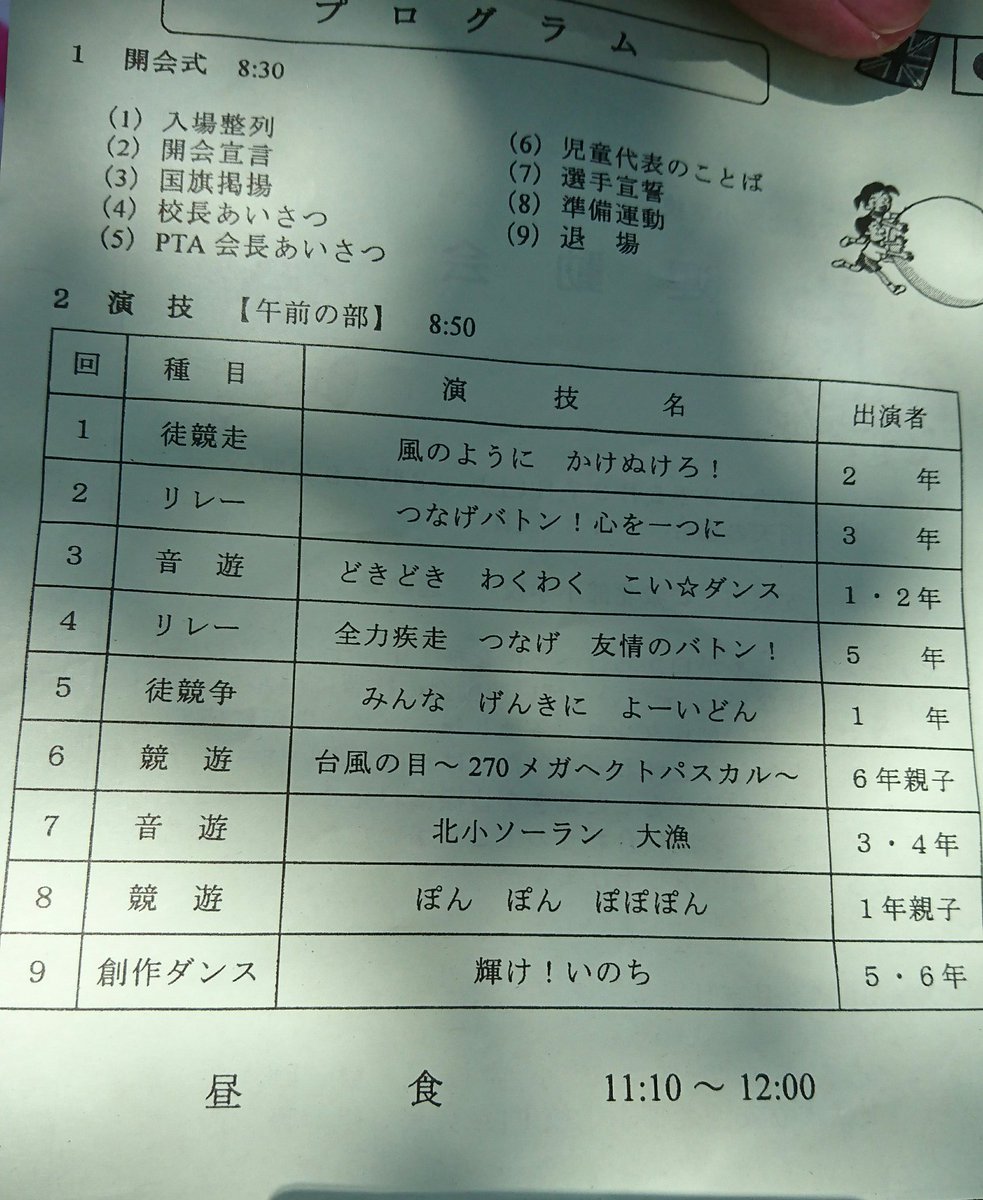 プログラム
1 開会式 8:30
(1) 入場整列
(2) 開会宣言
(3) 国旗掲揚
(4) 校長あいさつ
(5) PTA会長あいさつ
(6) 児童代表のことば
(7) 選手宣誓
(8) 準備運動
(9) 退 場
2 演 技 【午前の部】 8:50
回 種 目 演 技 名 出演者
1 徒競走 風のように かけぬけろ! 2 年
2 リレー つなげバトン!心を一つに 3 年
3 音 遊 どきどき わくわく こい☆ダンス 1・2年
4 リレー 全力疾走 つなげ 友情のバトン! 5 年
5 徒競争 みんな げんきに よーいどん 1 年
6 競 遊 台風の目~270メガヘクトパスカル~ 6年親子
7 音 遊 北小ソーラン 大漁 3・4年
8 競 遊 ぽん ぽん ぽぽぽん 1年親子
9 創作ダンス 輝け!いのち 5・6年
昼 食 11:10 ~ 12:00